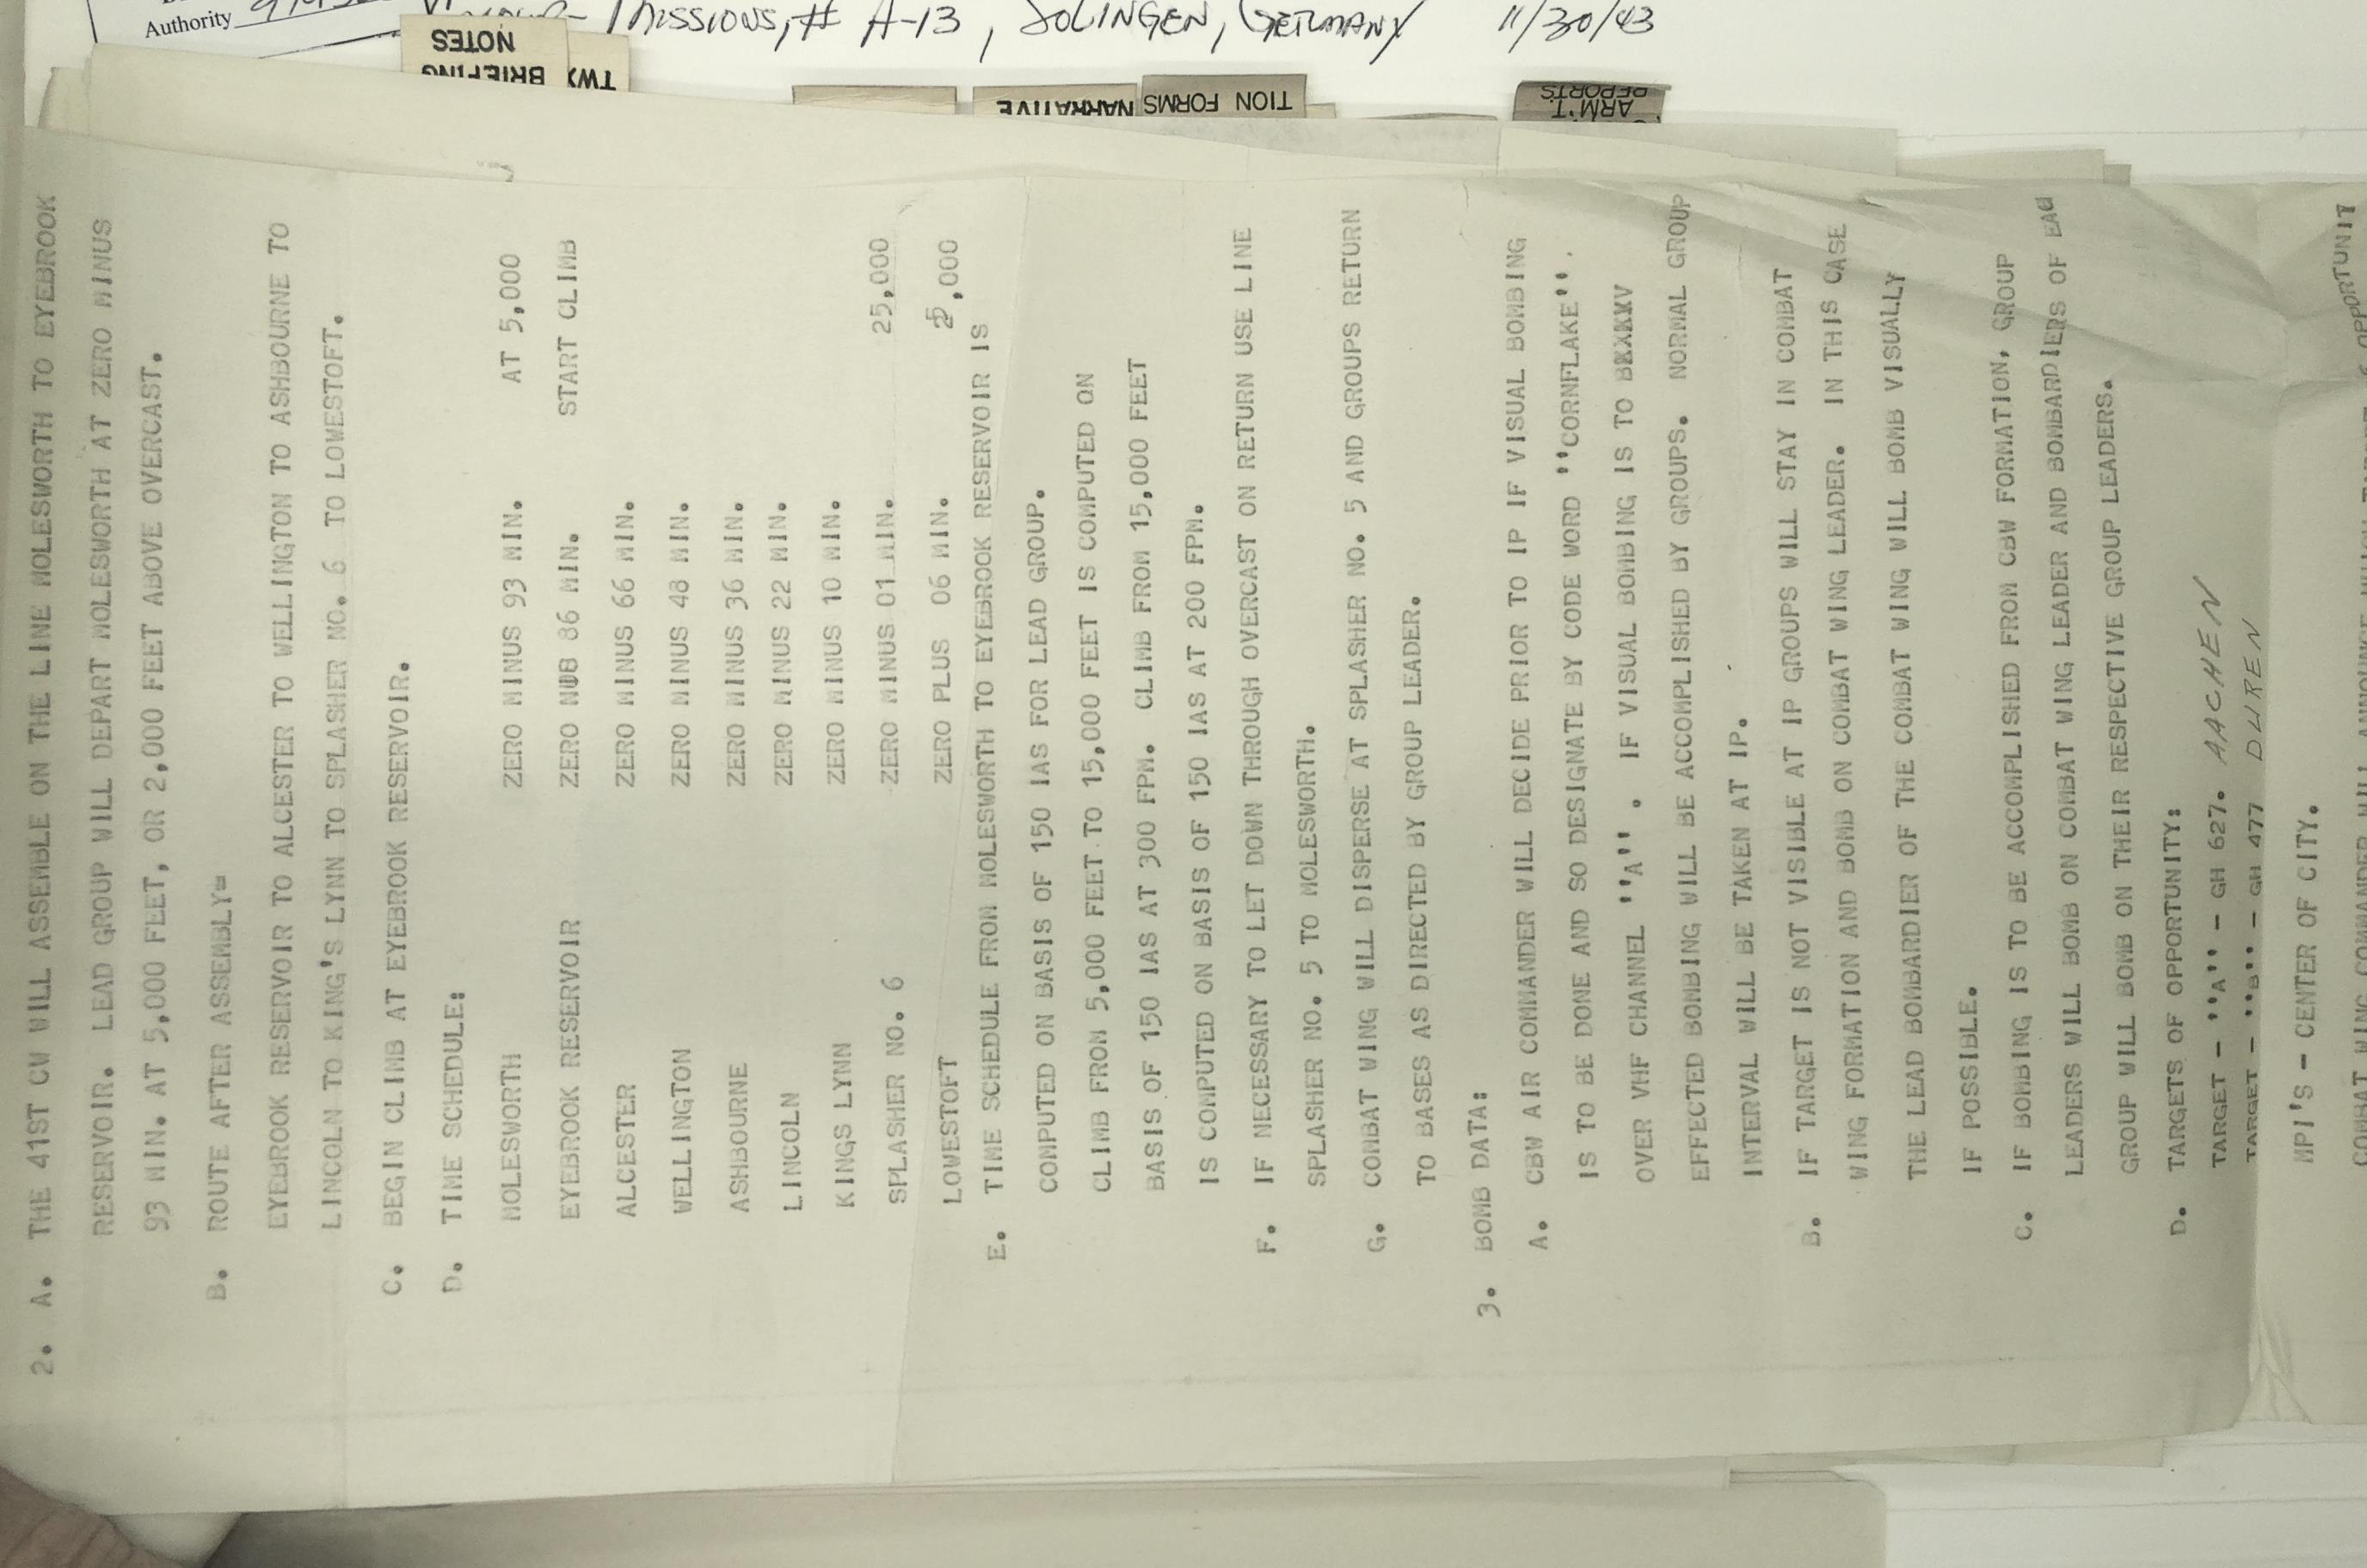 Authority
Missions, # A-13, SOLINGEN, GERMANY 11/30/43
BRIEFING
NOTES
TWX
NARRATIVE
TION FORMS
ARM'T.
REPORTS
2. A. THE 41ST CW WILL ASSEMBLE ON THE LINE MOLESWORTH TO EYEBROOK
RESERVOIR. LEAD GROUP WILL DEPART MOLESWORTH AT ZERO MINUS
93 MIN. AT 5,000 FEET, OR 2,000 FEET ABOVE OVERCAST.
B. ROUTE AFTER ASSEMBLY=
EYEBROOK RESERVOIR TO ALCESTER TO WELLINGTON TO ASHBOURNE TO
LINCOLN TO KING'S LYNN TO SPLASHER NO. 6 TO LOWESTOFT.
C. BEGIN CLIMB AT EYEBROOK RESERVOIR.
D. TIME SCHEDULE:
MOLESWORTH ZERO MINUS 93 MIN. AT 5,000
EYEBROOK RESERVOIR ZERO 86 MIN. START CLIMB
ALCESTER ZERO MINUS 66 MIN.
WELLINGTON ZERO MINUS 48 MIN.
ASHBOURNE ZERO MINUS 36 MIN.
LINCOLN ZERO MINUS 22 MIN.
KINGS LYNN ZERO MINUS 10 MIN.
SPLASHER NO. 6 ZERO MINUS 01 MIN. 25,000
LOWESTOFT ZERO PLUS 06 MIN. 25,000
E. TIME SCHEDULE FROM MOLESWORTH TO EYEBROOK RESERVOIR IS
COMPUTED ON BASIS OF 150 IAS FOR LEAD GROUP.
CLIMB FROM 5,000 FEET TO 15,000 FEET IS COMPUTED ON
BASIS OF 150 IAS AT 300 FPM. CLIMB FROM 15,000 FEET
IS COMPUTED ON BASIS OF 150 IAS AT 200 FPM.
F. IF NECESSARY TO LET DOWN THROUGH OVERCAST ON RETURN USE LINE
SPLASHER NO. 5 TO MOLESWORTH.
G. COMBAT WING WILL DISPERSE AT SPLASHER NO. 5 AND GROUPS RETURN
TO BASES AS DIRECTED BY GROUP LEADER.
3. BOMB DATA:
A. CBW AIR COMMANDER WILL DECIDE PRIOR TO IP IF VISUAL BOMBING
IS TO BE DONE AND SO DESIGNATE BY CODE WORD ''CORNFLAKE''.
OVER VHF CHANNEL ''A'' . IF VISUAL BOMBING IS TO BXXXXV
EFFECTED BOMBING WILL BE ACCOMPLISHED BY GROUPS. NORMAL GROUP
INTERVAL WILL BE TAKEN AT IP.
B. IF TARGET IS NOT VISIBLE AT IP GROUPS WILL STAY IN COMBAT
WING FORMATION AND BOMB ON COMBAT WING LEADER. IN THIS CASE
THE LEAD BOMBARDIER OF THE COMBAT WING WILL BOMB VISUALLY
IF POSSIBLE.
C. IF BOMBING IS TO BE ACCOMPLISHED FROM CBW FORMATION, GROUP
LEADERS WILL BOMB ON COMBAT WING LEADER AND BOMBARDIERS OF
GROUP WILL BOMB ON THEIR RESPECTIVE GROUP LEADERS.
D. TARGETS OF OPPORTUNITY:
TARGET - ''A'' - GH 627. AACHEN
TARGET - ''B'' - GH 477 DUREN
MPI'S - CENTER OF CITY.
COMBAT WING COMMANDER WILL ANNOUNCE WHICH TARGET OPPORTUNIT